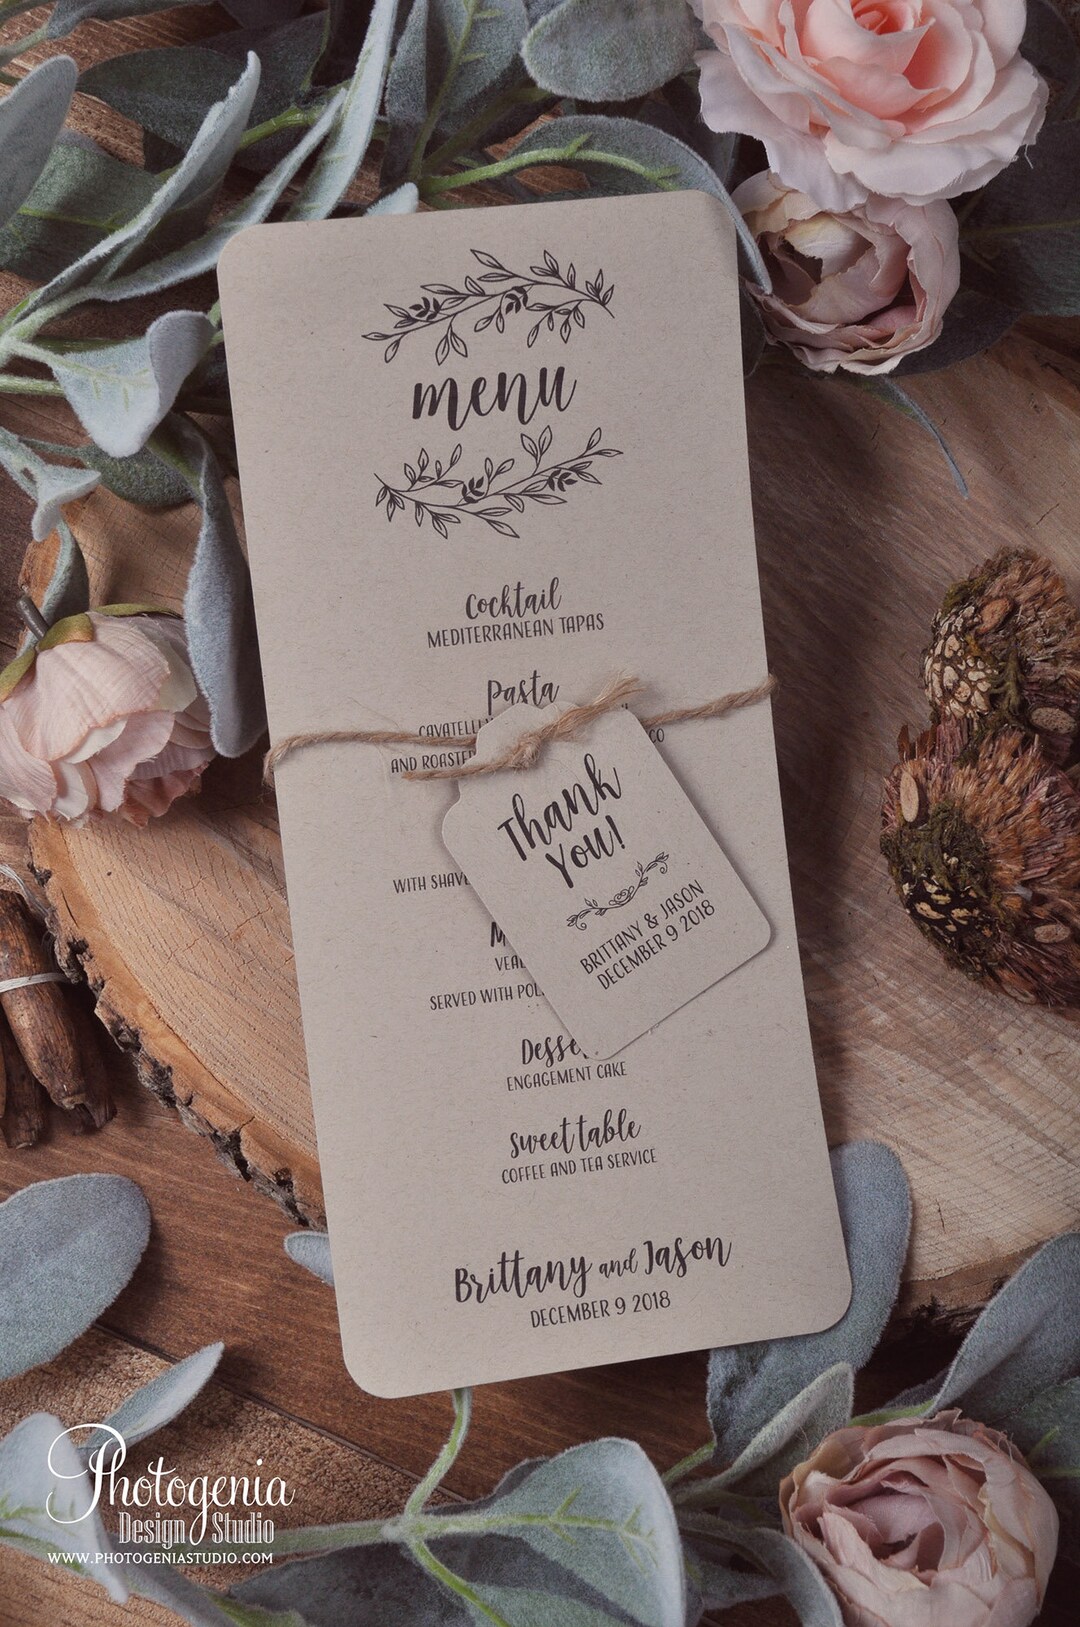 menu
Cocktail
MEDITERRANEAN TAPAS
Pasta
AND
WITH
SERVED WITH
ENGAGEMENT CAKE
sweet table
COFFEE AND TEA SERVICE
Brittany and Jason
DECEMBER 9 2018
Thank
You!
BRITTANY & JASON
DECEMBER 9 2018
Photogenia
Design Studio
WWW.PHOTOGENIASTUDIO.COM